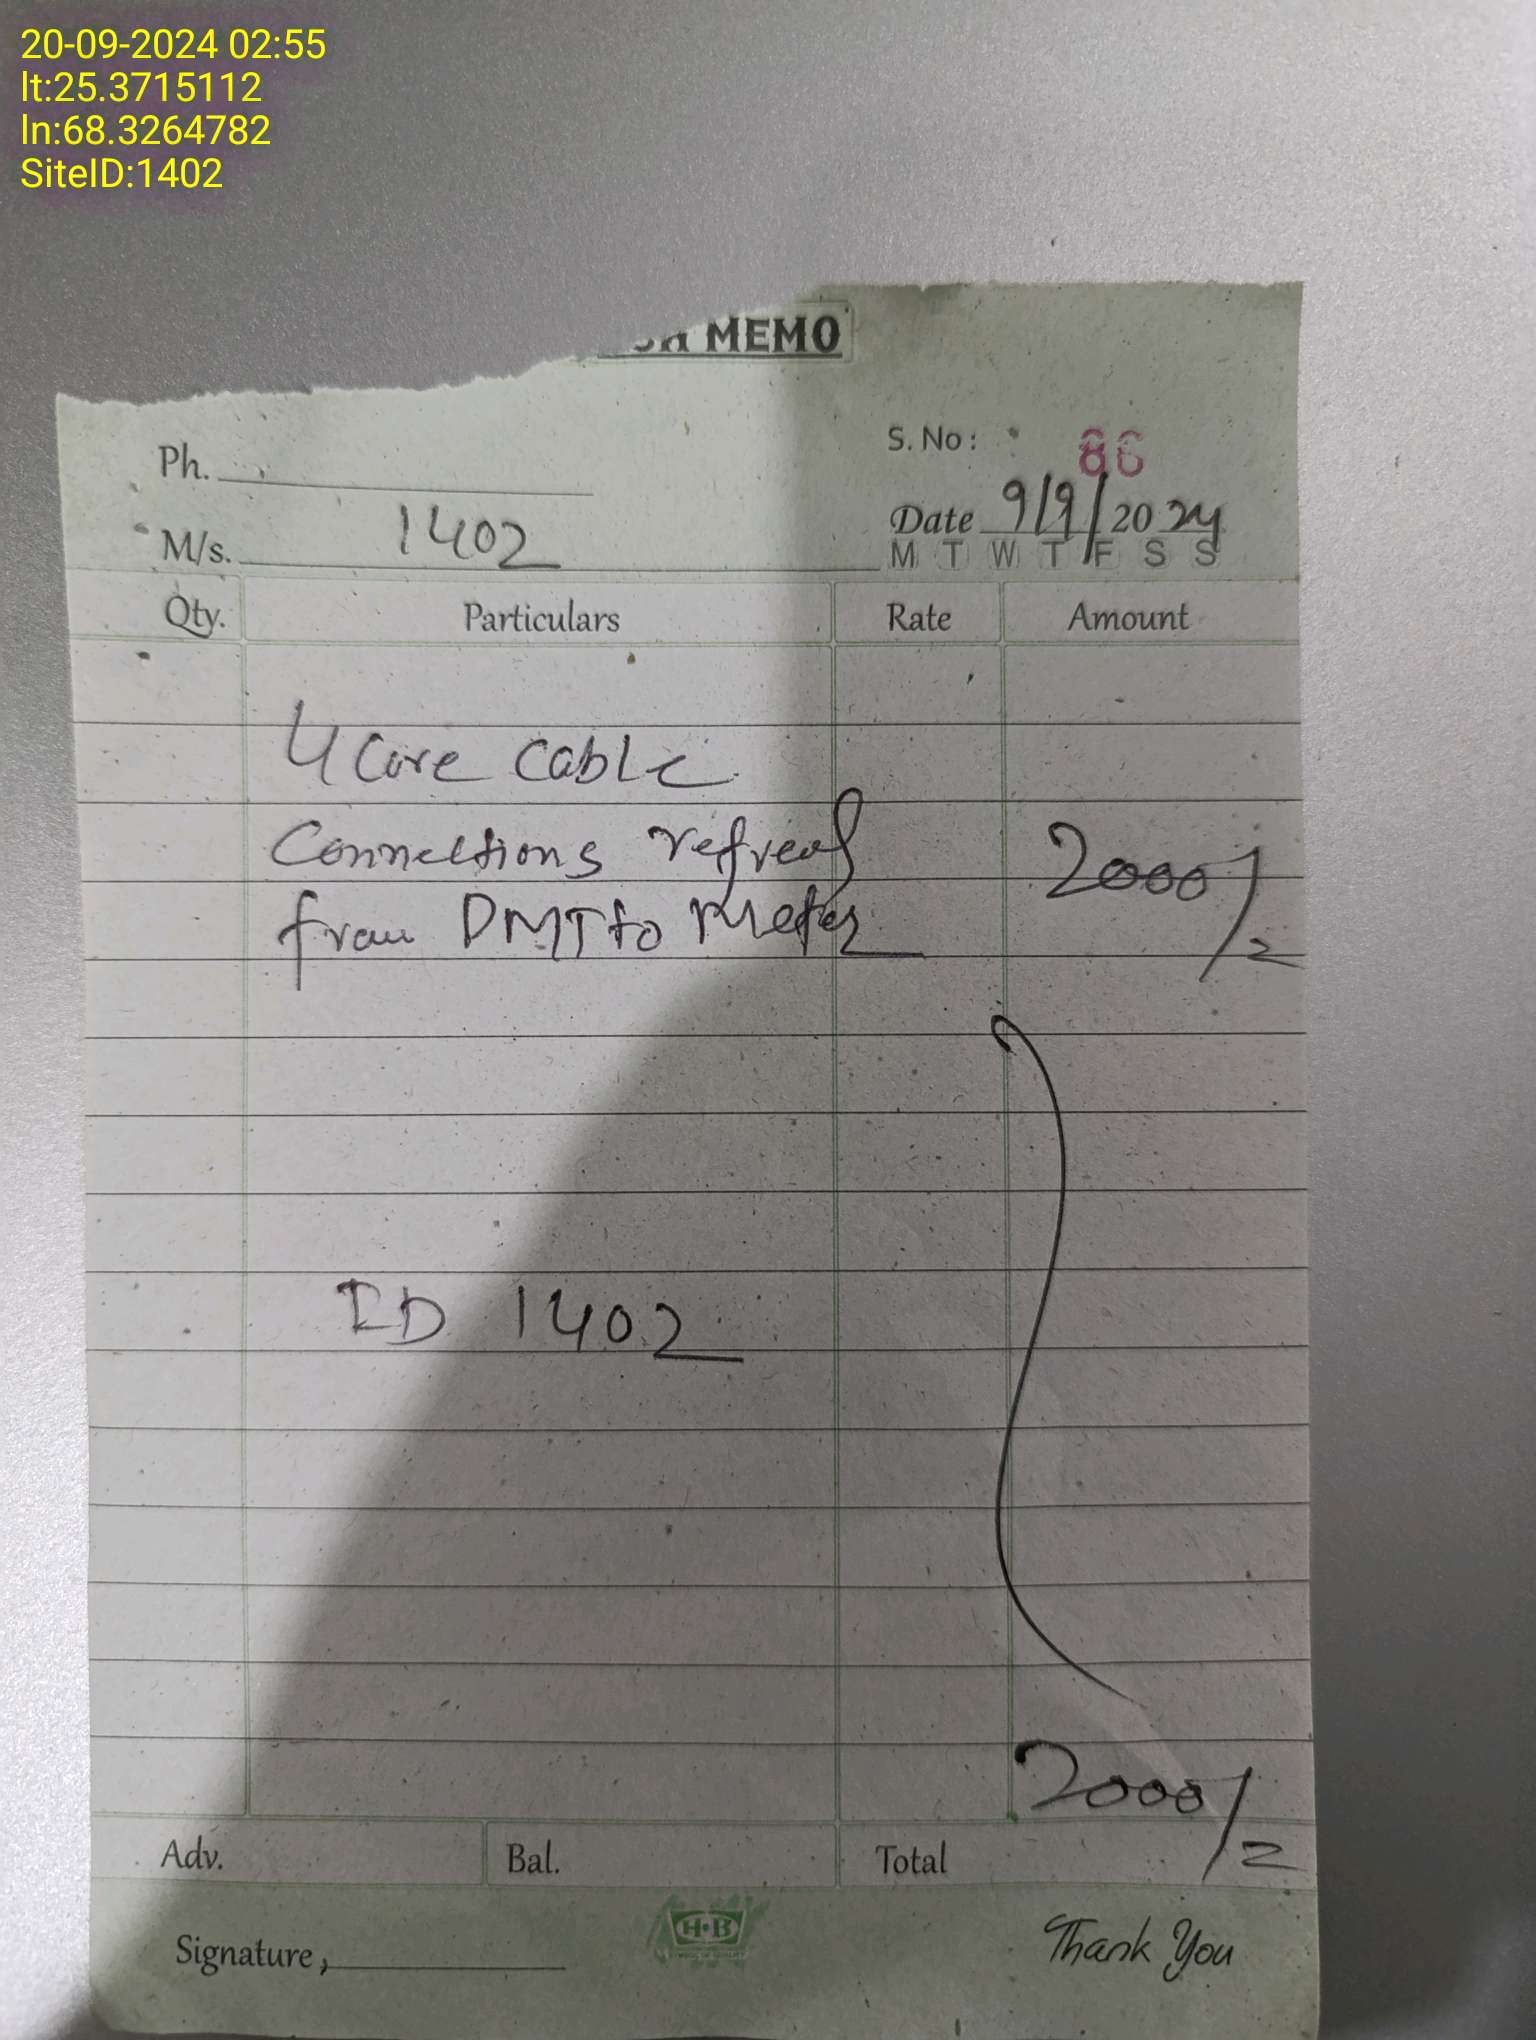 20-09-2024 02:55
lt:25.3715112
ln:68.3264782
SiteID:1402
MEMO
S. No: 86
Ph.
Date 9/9/2024
M/s. 1402
M T W T F S S
Qty. Particulars Rate Amount
4 Core Cable
Connections
2000/=
from DMT to Meter
ID 1402
2000/=
Adv. Bal. Total
H·B
Signature, Thank You